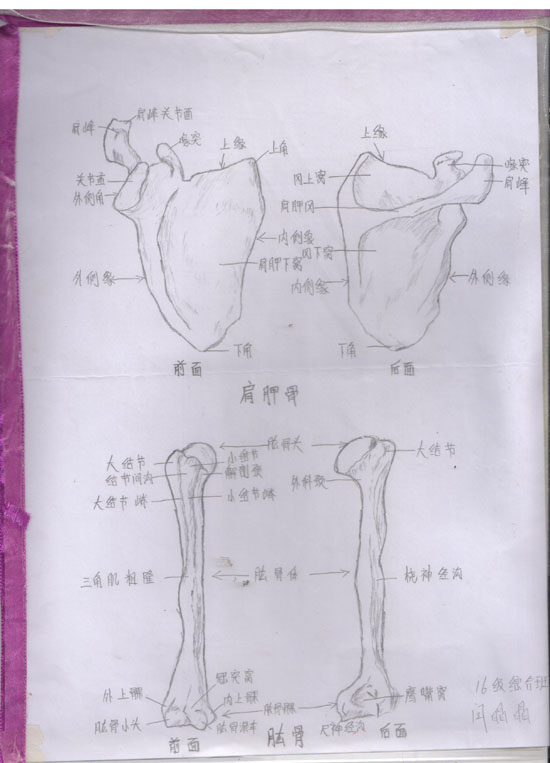 肩峰关节面
肩峰
喙突
上缘
上角
关节盂
外侧角
内侧缘
肩胛下窝
外侧缘
下角
前面
上缘
冈上窝
喙突
肩峰
肩胛冈
冈下窝
内侧缘
外侧缘
下角
后面
肩胛骨
肱骨头
大结节
小结节
结节间沟
解剖颈
大结节嵴
小结节嵴
大结节
外科颈
三角肌粗隆
肱骨体
桡神经沟
冠突窝
外上髁
内上髁
肱骨小头
肱骨滑车
前面
鹰嘴窝
尺神经沟
后面
肱骨
16级综合班